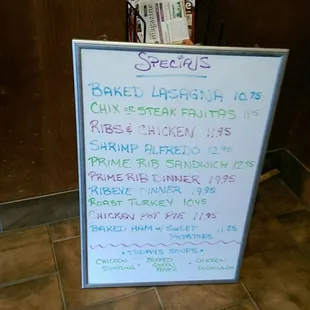 magazine
SPECIALS
BAKED LASAGNA 10.75
CHIX OR STEAK FAJITAS
RIBS & CHICKEN 11.95
SHRIMP ALFREDO 12.95
PRIME RIB SANDWICH 12.95
PRIME RIB DINNER 19.95
RIBEYE DINNER 19.95
ROAST TURKEY 10.45
CHICKEN POT PIE 11.95
BAKED HAM W/ SWEET 11.25
POTATOES
TODAYS SOUPS
CHICKEN DUMPLING
STUFFED GREEN PEPPER
CHICKEN ENCHILADA